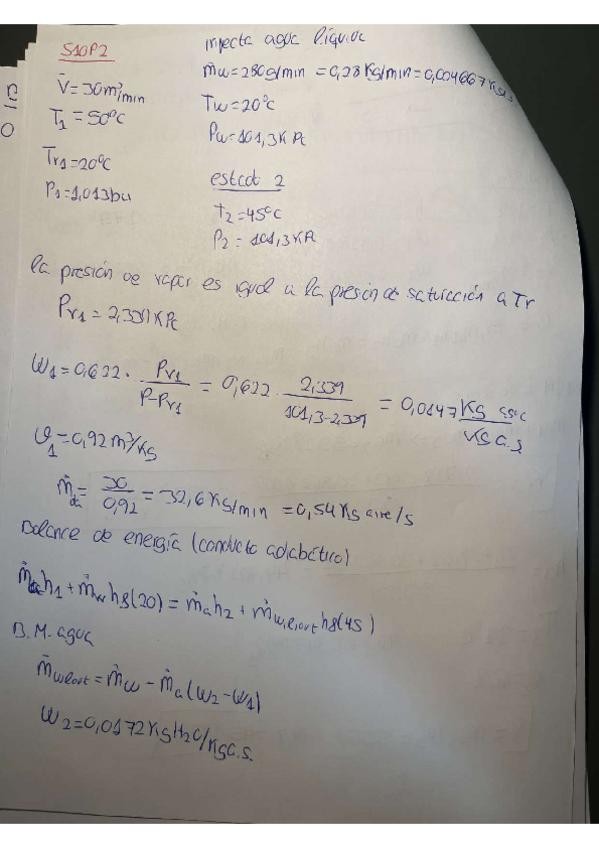 S10P2
V̇ = 30 m³/min
T₁ = 50°C
Tr₁ = 20°C
P₁ = 1,013 bar
inyecta agua líquida
ṁw = 280 g/min = 0,28 Kg/min = 0,004667 Kg/s
Tw = 20°C
Pw = 101,3 KPa
estado 2
T₂ = 45°C
P₂ = 101,3 KPa
la presión de vapor es igual a la presión de saturación a Tr
Pv₁ = 2,339 KPa
ω₁ = 0,622 · Pv₁/(P-Pv₁) = 0,622 · 2,339/(101,3-2,339) = 0,0147 Kg agua/Kg a.s
υ₁ = 0,92 m³/Kg
ṁa = 30/0,92 = 32,6 Kg/min = 0,54 Kg aire/s
Balance de energía (conducto adiabático)
ṁa h₁ + ṁw hf(20) = ṁa h₂ + ṁw,l,out hf(45)
B.M. agua
ṁw,l,out = ṁw - ṁa (ω₂ - ω₁)
ω₂ = 0,0172 Kg H₂O/Kg a.s.